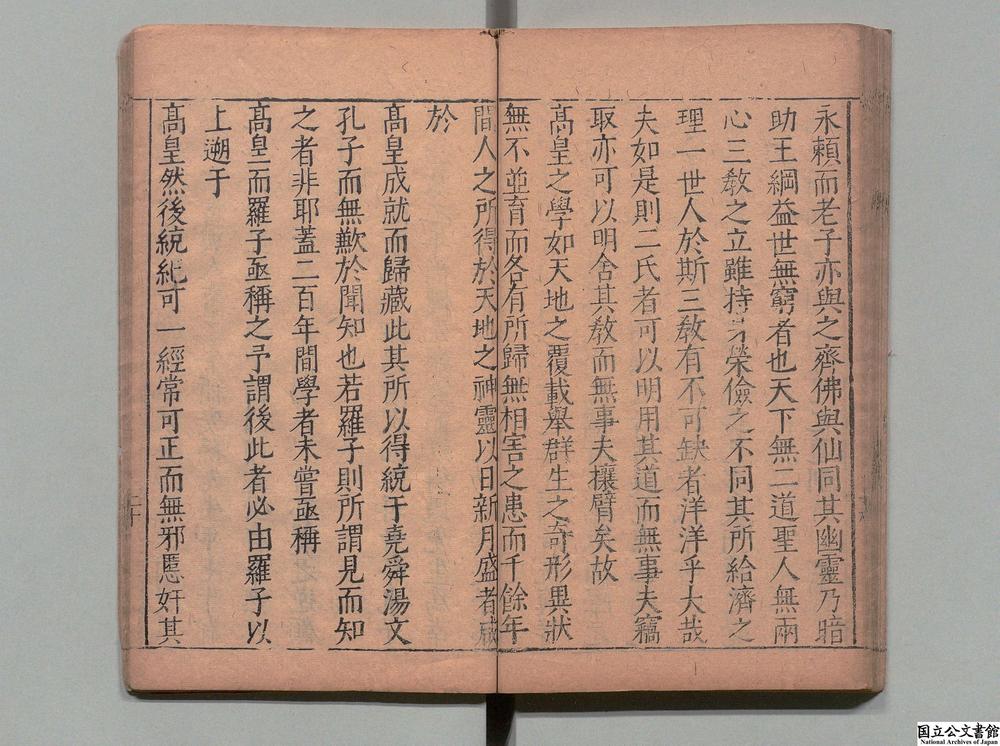 永賴而老子亦與之齊佛與仙同其幽靈乃暗
助王綱益世無窮者也天下無二道聖人無兩
心三教之立雖持身榮儉之不同其所給濟之
理一世人於斯三教有不可缺者洋洋乎大哉
夫如是則二氏者可以明用其道而無事夫竊
取亦可以明舍其教而無事夫攘臂矣故
高皇之學如天地之覆載舉群生之奇形異狀
無不並育而各有所歸無相害之患而千餘年
間人之所得於天地之神靈以日新月盛者咸
於
高皇成就而歸藏此其所以得統于堯舜湯文
孔子而無歉於聞知也若羅子則所謂見而知
之者非耶蓋二百年間學者未嘗亟稱
高皇而羅子亟稱之予謂後此者必由羅子以
上遡于
高皇然後統紀可一經常可正而無邪慝奸其
二十
国立公文書館
National Archives of Japan